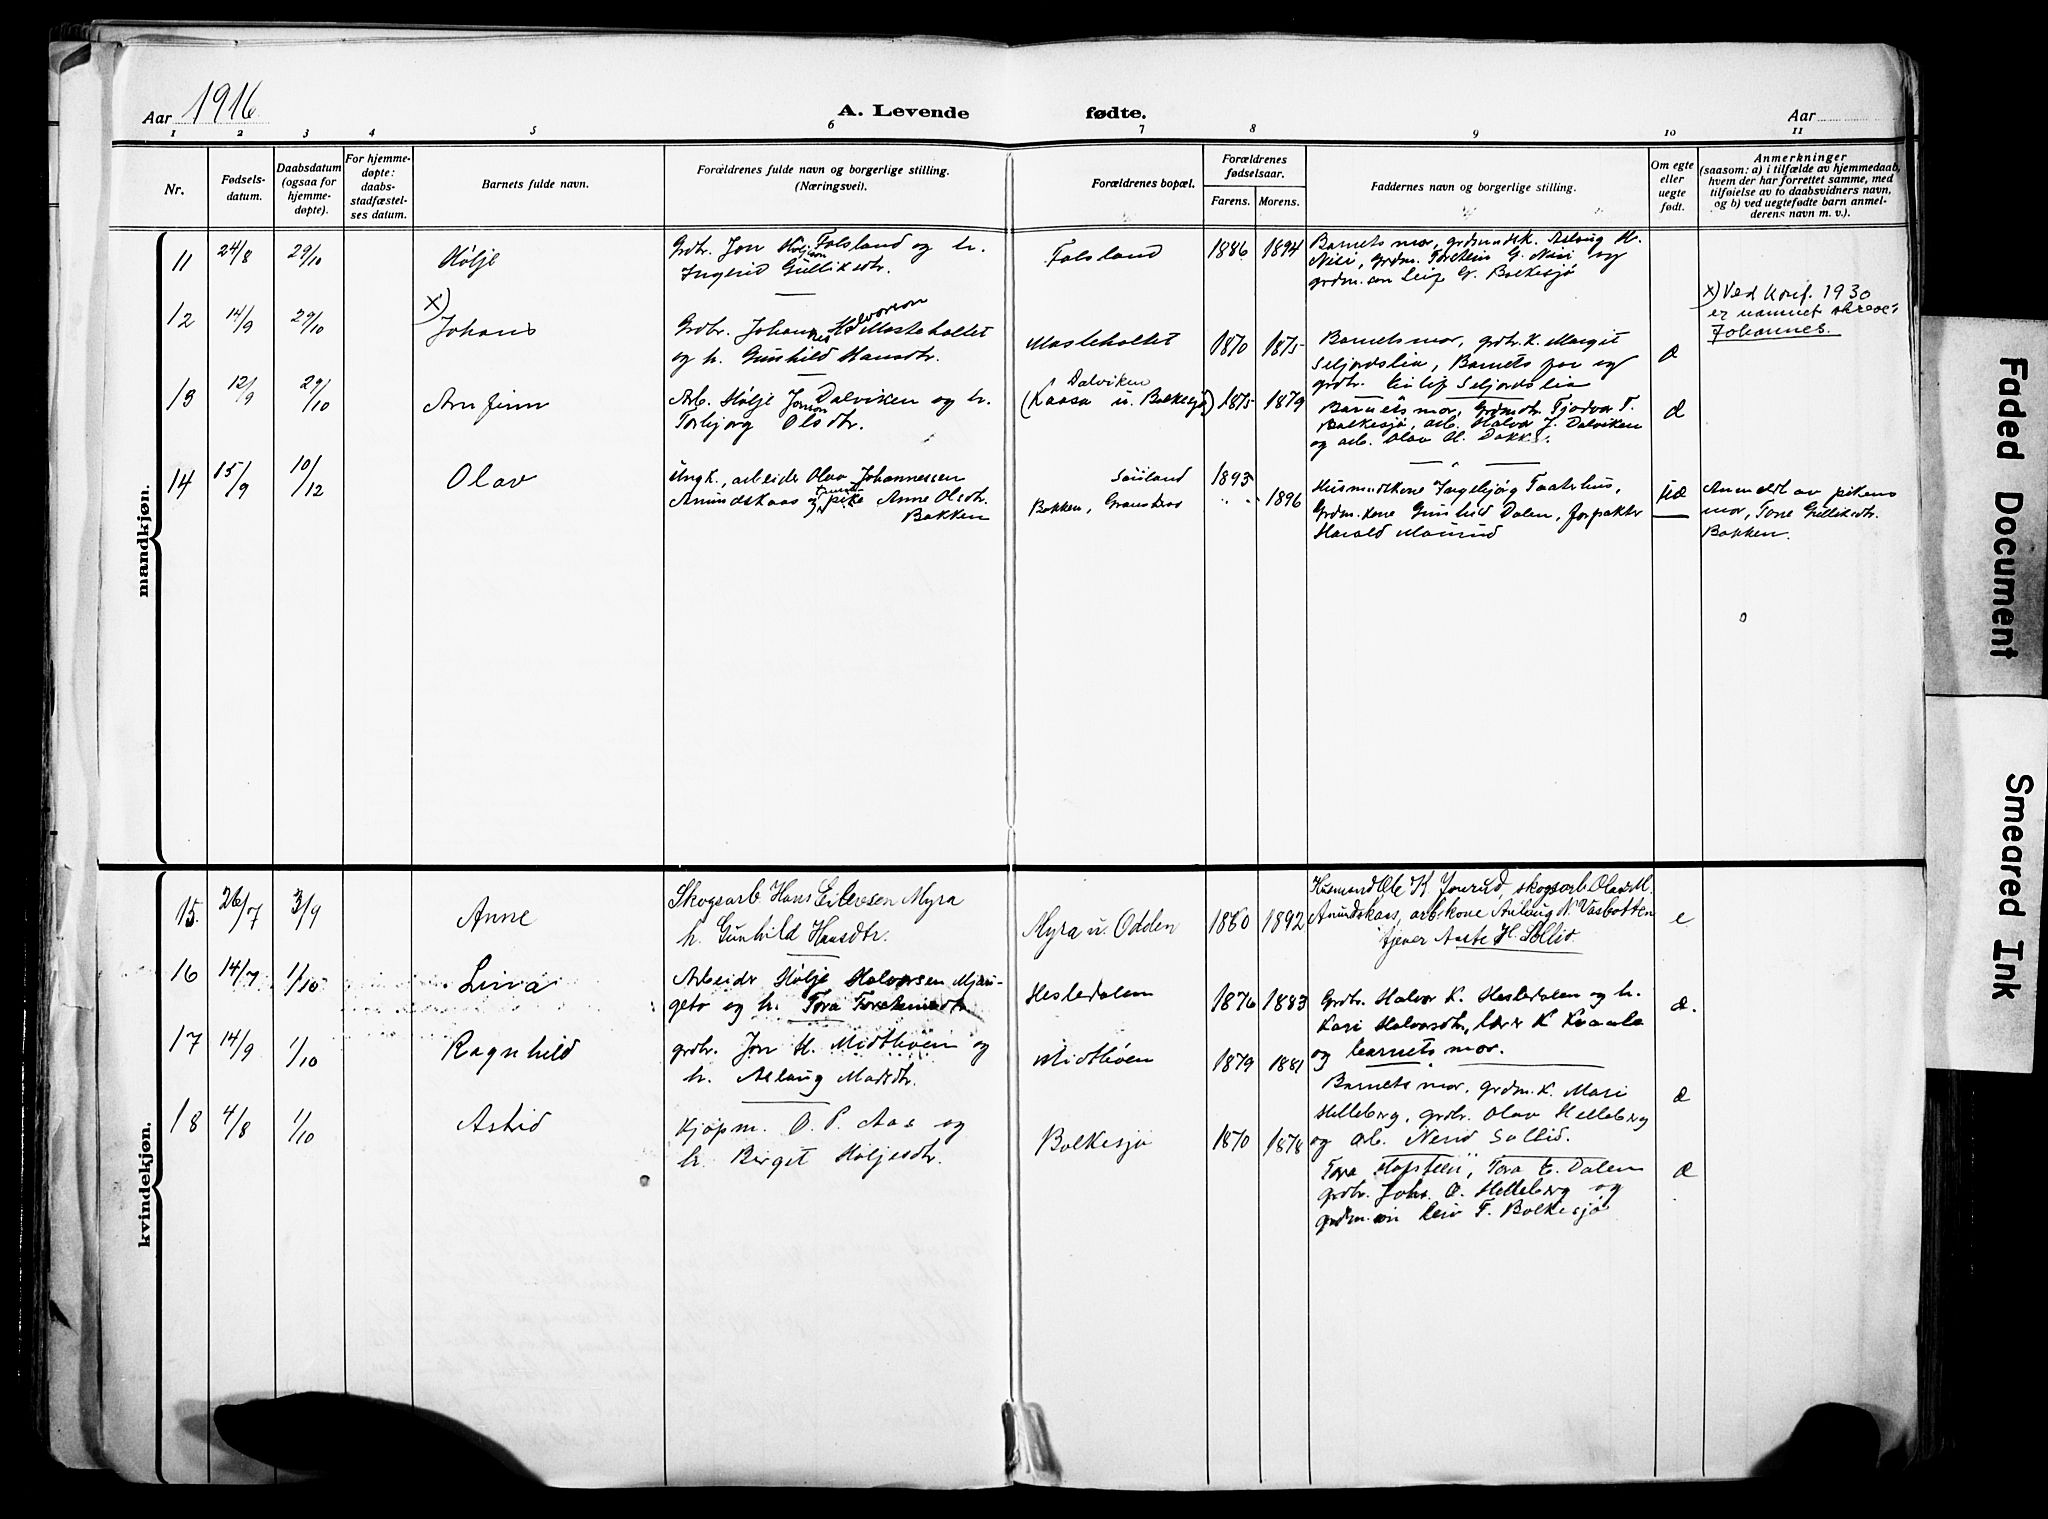 Aar 1916
A. Levende fødte.
Aar
1 2 3 4 5 6 7 8 9 10 11
Nr.
Fødselsdatum.
Daabsdatum (ogsaa for hjemmedøpte).
For hjemmedøpte: daabsstadfæstelses datum.
Barnets fulde navn.
Forældrenes fulde navn og borgerlige stilling. (Næringsvei).
Forældrenes bopæl.
Forældrenes fødselsaar.
Farens. Morens.
Faddernes navn og borgerlige stilling.
Om egte eller uegte født.
Anmerkninger
(saasom: a) i tilfælde av hjemmedaab, hvem der har forrettet samme, med tilføielse av to daabsvidners navn, og b) ved uegtefødte barn anmelderens navn m. v.).
mandkjøn.
11 24/8 29/10 Hølje
Grdbr. Jon Høljeson Folsland og h.
Ingerid Gulliksdtr.
Folsland 1886 1894
Barnets mor, grdmndsk. Aslaug H.
Nisi, grdm. Torstein G. Nisi og
grdm.søn Leif G. Bolkesjø
12 14/9 29/10 x) Johans
Grdbr. Johannes Halvorson Mosteholtet
og h. Gunhild Hansdtr.
Mosteholtet 1870 1875
Barnets mor, grdbr.k. Margit
Seljordslia, Barnets far og
grdbr. Eilif Seljordslia
æ
x) Ved konf. 1930
er navnet skrevet
Johannes.
13 12/9 29/10 Arnfinn
Arb. Hølje Jonson Dalviken og h.
Torbjørg Olsdtr.
Dalviken
(Kaasa u. Bolkesjø) 1875 1879
Barnets mor, Grdmdtr. Tjodvor T.
Bolkesjø, arb. Halvor J. Dalviken
og arb. Olav H. Dokk
æ
14 15/9 10/12 Olav
Ungk., arbeider Olav Johannessen
Amundskaas og pike Anne Olsdtr.
Bakken
Sauland 1893
Bakken, Gransherad 1896
Husmndskone Ingebjørg Taatehus,
Grdm.kone Gunhild Dalen, forpakter
Harald Mosrud
uæ
Anmeldt av pikens
mor, Tone Gulliksdtr.
Bakken.
kvindekjøn.
15. 26/7 3/9 Anne
Skogsarb Hans Eilevsen Myra
h. Gunhild Hansdtr.
Myra u. Odden 1860 1892
Husmand Ole K. Jonrud, skogsarb Olav M.
Amundskaas, arb.kone Aslaug N. Vasbotten
tjener Aaste H. Sollid.
e
16 14/7 1/10 Liva
Arbeider Hølje Halvorsen
og h. Tora Torsteinsdtr.
Hesledalen 1876 1883
Grdbr. Halvor K. Hesledalen og h.
Kari Halvorsdtr., lærer K Kvaale
og barnets mor.
æ.
17 14/9 1/10 Ragnhild
grdbr. Jon H. Midtbøen og
h. Aslaug Madsdtr.
Midtbøen 1879 1881
Barnets mor, grdm.k. Mari
Helleberg, grdbr. Olav Helleberg
og arb. Nerid Sollid.
æ
18 4/8 1/10 Astrid
Kjøpm. O. P. Aas og
h. Berget Høljesdtr.
Bolkesjø 1870 1878
Tora Hofstein, Tora E. Dalen
grdbr. Johs. O. Helleberg og
grdm.søn Leiv T. Bolkesjø
æ
Faded Document
Smeared Ink